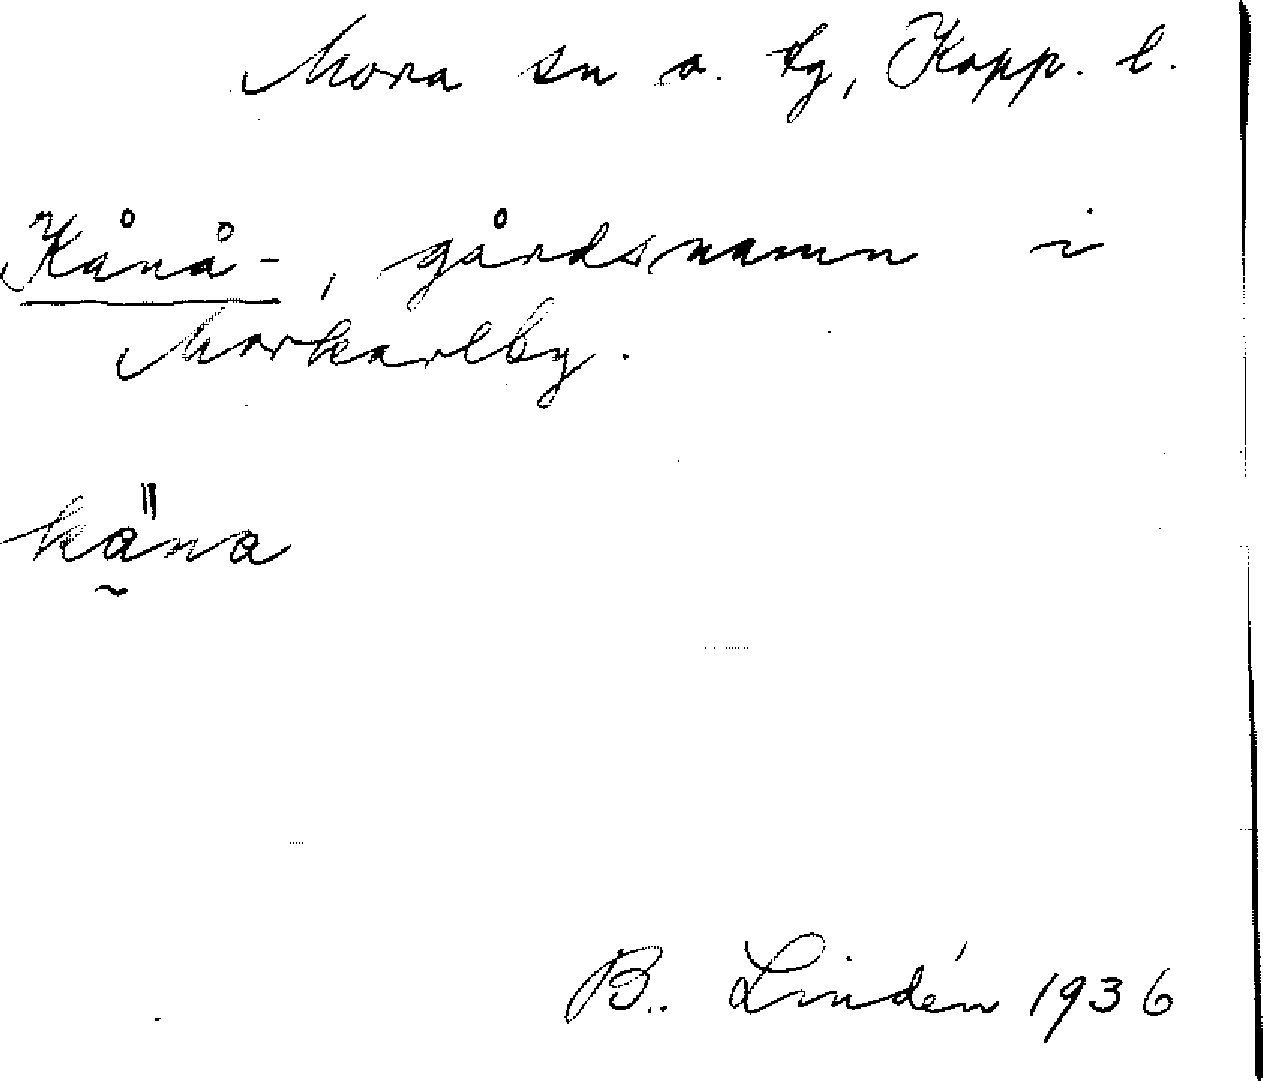 Mora sn o. tg, Kopp. l.
Kånå-, gårdsnamn i
Morkarlby.
käna
B. Lindén 1936